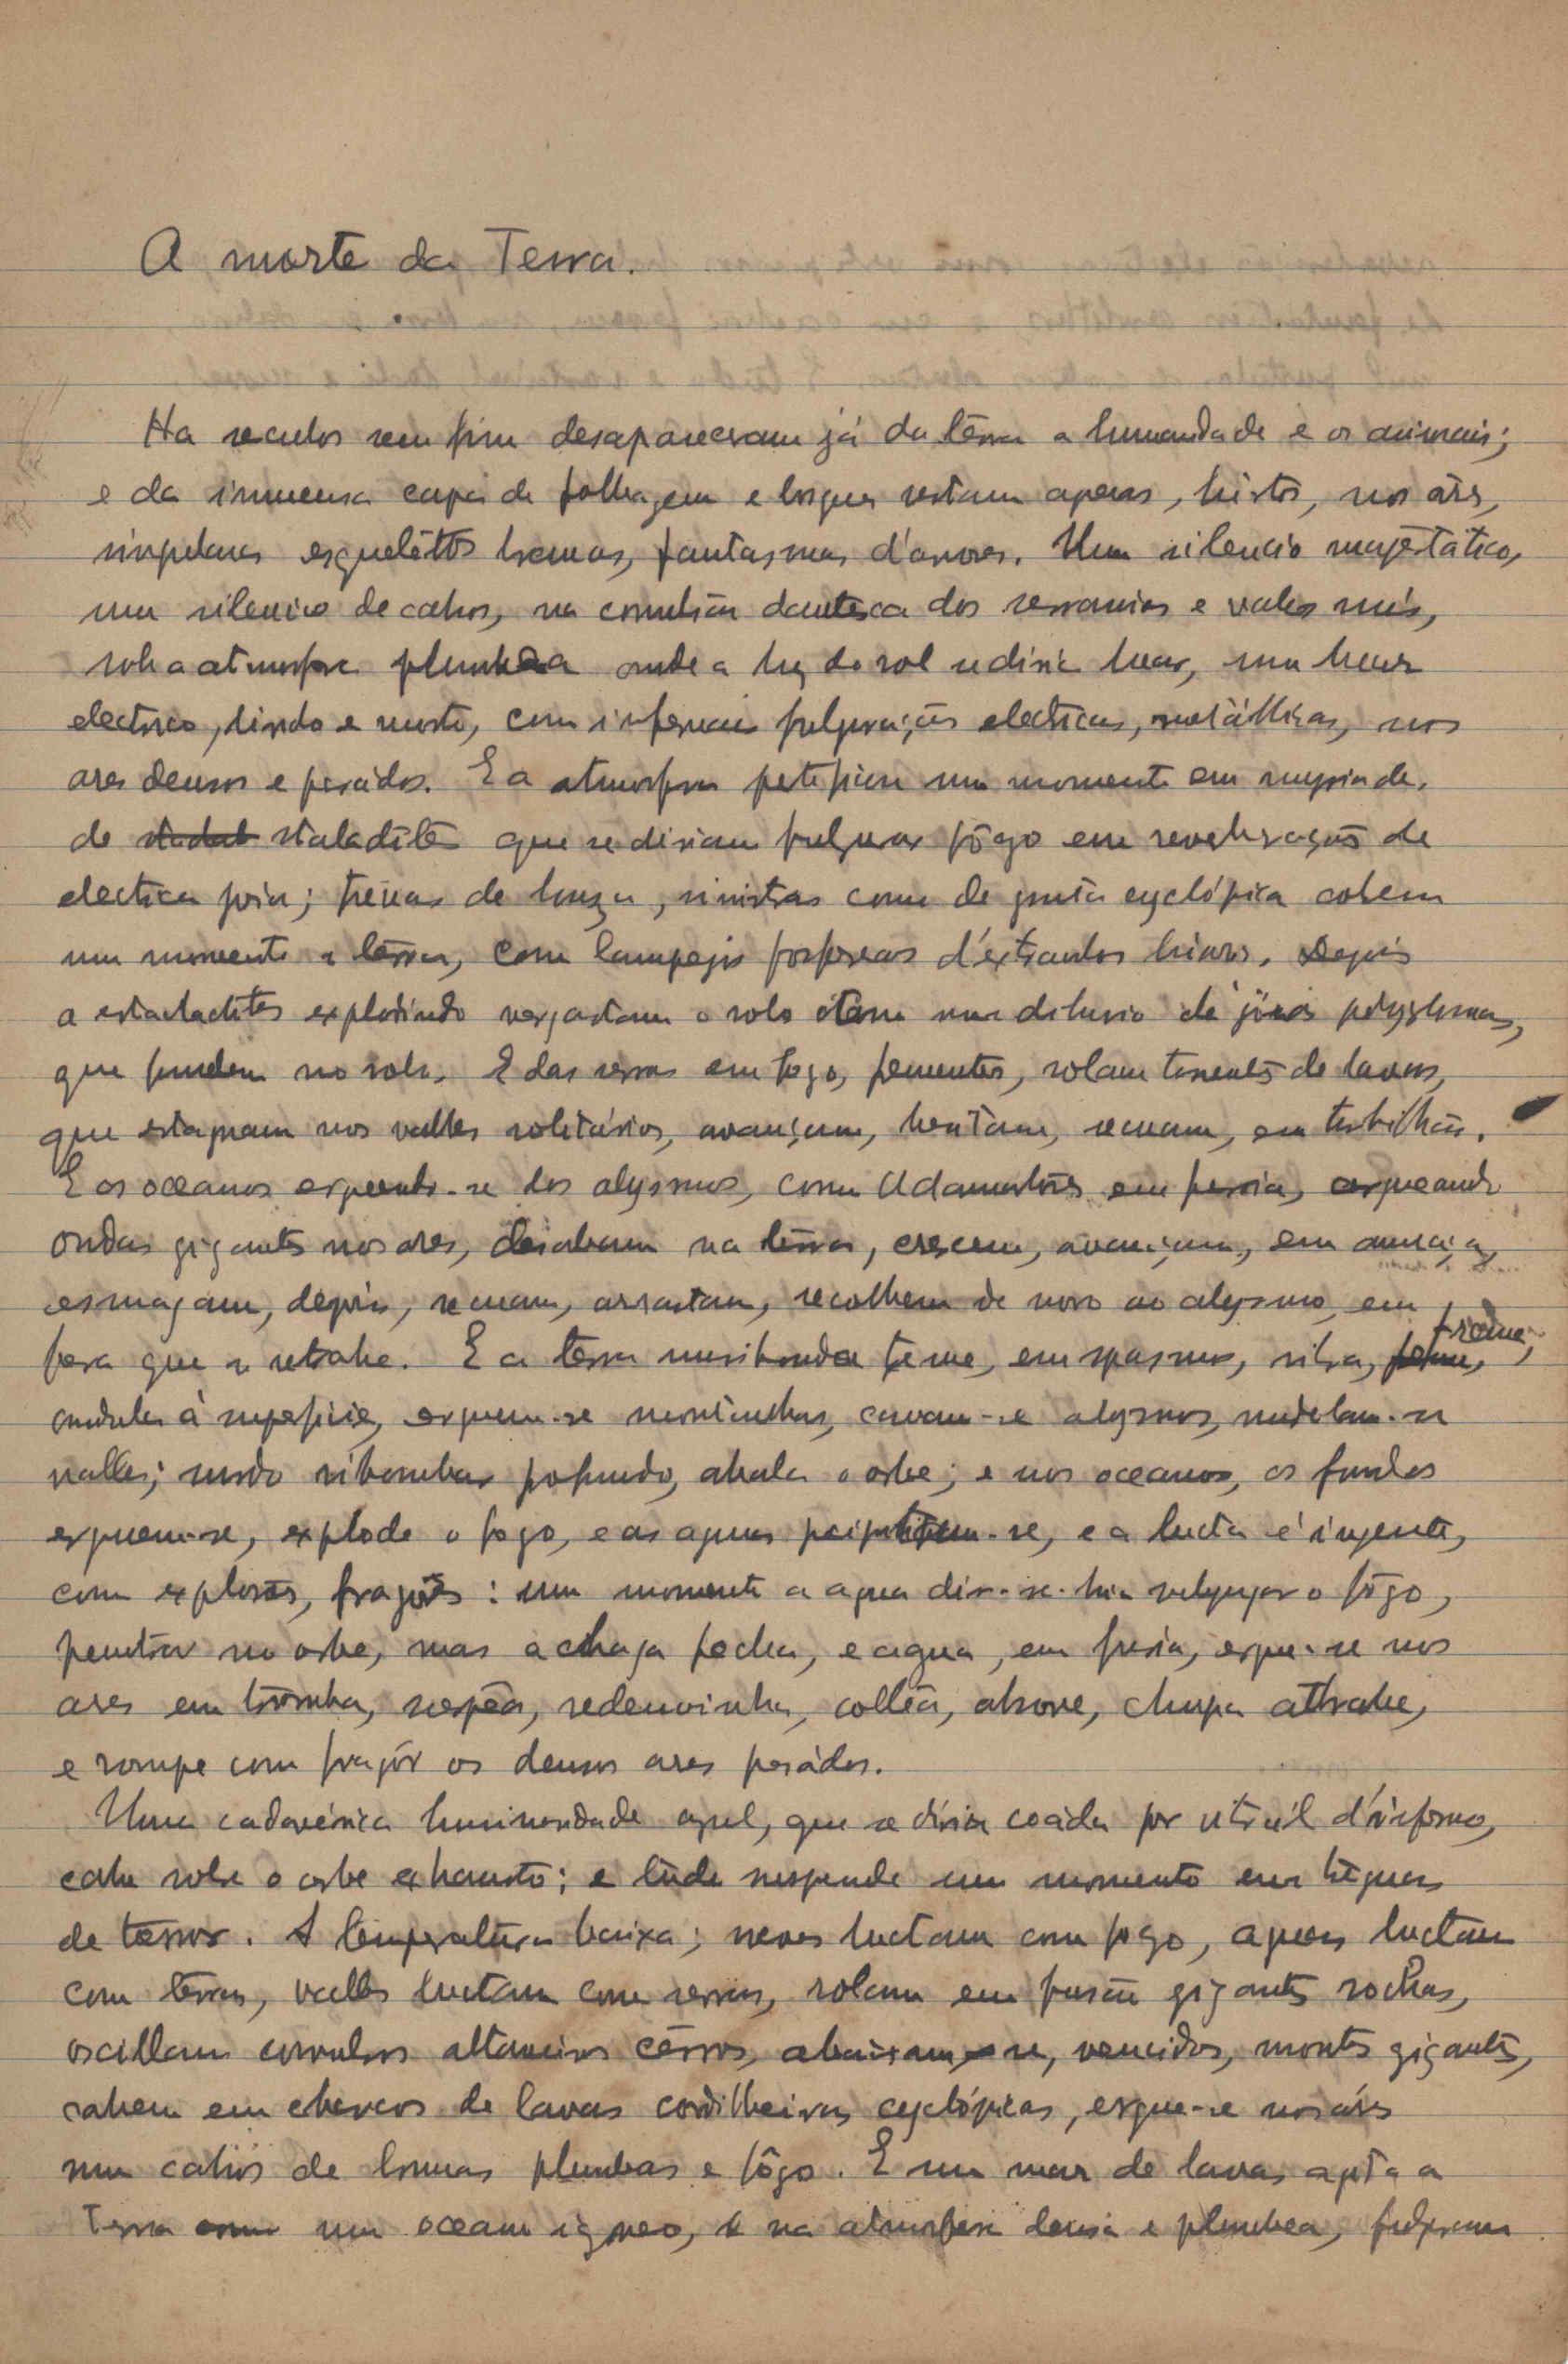 A morte da Terra.
Ha seculos sem fim desapareceram já da terra a humanidade e os animais;
e da immensa capa de folhagem e bosques restam apenas, hirtos, nos ares,
singulares esqueletos bremas, fantasmas d'arvores. Um silencio majestatico,
um silencio de cahos, na convulsão dantesca dos serranias e vales nús,
sob a atmosfera plumbea onde a luz do sol se diria luar, um luar
electrico, lindo e morto, com infernais fulgurações electricas, metállicas, nos
ares densos e pesádos. E a atmosfera petrifica um momento em myriade.
de stalactites que se diriam fulgurar fôgo em reverberações de
electrica fria; trevas de louza, sinistras como de gruta cyclópica cobrem
um momento a terra, com lampejos fosforeos d'extranhos brilhos. Depois
a estalactites explodindo vergastam o solo num diluvio de joias polygluma,
que fundem no solo. E das serras em fogo, frementes, rolam torrentes de lavas,
que estagnam nos valles solitários, avançam, hesitam, recuam, em turbilhão.
E os oceanos erguendo-se dos abysmos, como Adamastores em furia, arqueando
ondas gigantes nos ares, desabam na terra, crescem, avançam, em ameaça,
esmagam, depois, recuam, arrastam, recolhem de novo ao abysmo, em
fera que se retrahe. E a terra moribunda treme, em spasmos, silva, freme,
ondula à superficie, erguem-se montanhas, cavam-se abysmos, modelam-se
valles; surdo ribombar profundo, abala o orbe; e nos oceanos, os fundos
erguem-se, explode o fogo, e as aguas precipitam-se, e a lucta é ingente,
com explosões, fragores: um momento a agua dir-se-hia subjugar o fôgo,
penetrar no orbe, mas a chaga fecha, e agua, em furia, ergue-se nos
ares em tromba, serpêa, redemoinha, colleia, absorve, chupa attrahe,
e rompe com fragôr os densos ares pesádos.
Uma cadavérica luminosidade azul, que se diria coáda por vitral d'inferno,
cahe sobre o orbe exhausto; e tudo suspende um momento em tréguas
de terror. A temperatura baixa; neves luctam com fogo, aguas luctam
com terras, valles luctam com serras, rolam em fusão gigantes rochas,
oscillam convulsos altaneiros cerros, abaixam-se, vencidos, montes gigantes,
cahem em charcos de lavas cordilheiras cyclópicas, ergue-se nos áres
um cahos de brumas plumbeas e fôgo. E um mar de lavas agita a
Terra um oceano igneo, e na atmosfera densa e plumbea, fulguram